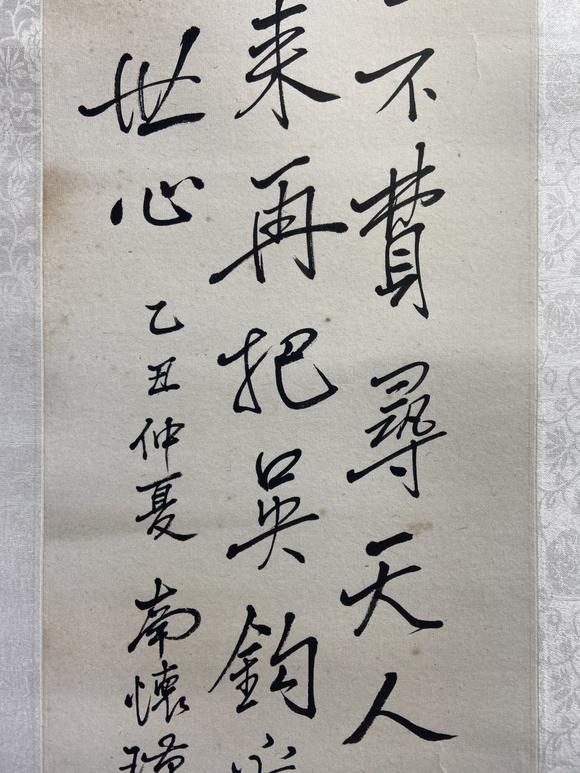 不費尋天人
來再把吳鈎
世心
乙丑仲夏 南懷瑾